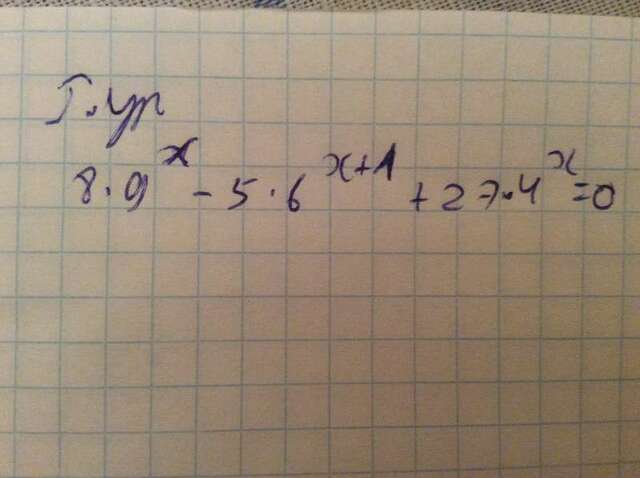 Г.ур
8·9^x - 5·6^{x+1} + 27·4^x = 0